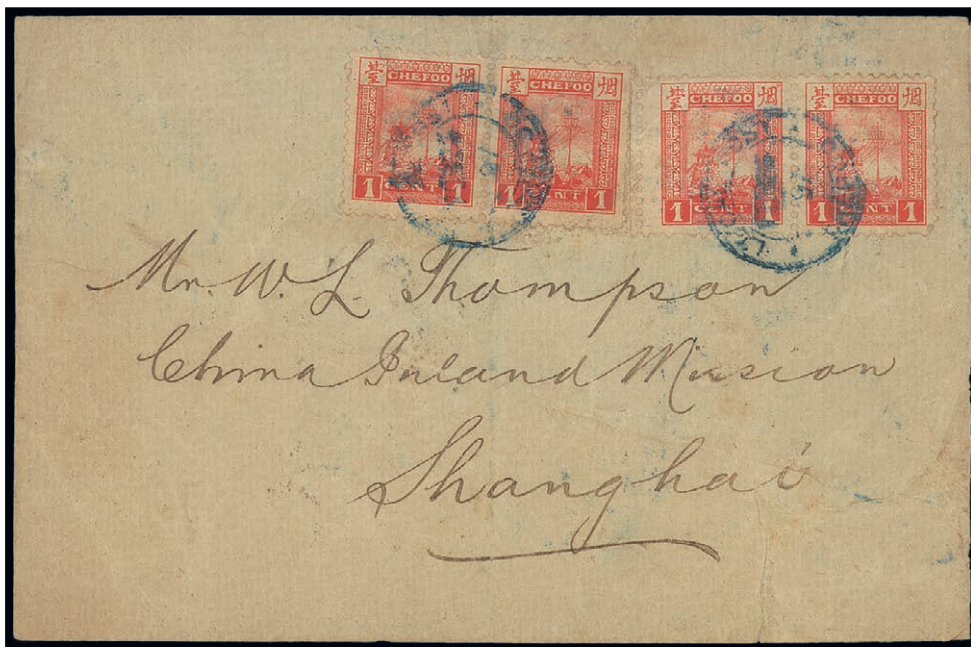 臺 CHEFOO 烟
1 CENT 1
臺 CHEFOO 烟
1 CENT
臺 CHEFOO 烟
1 CENT 1
臺 CHEFOO 烟
1 CENT 1
Mr. W. L. Thompson
China Inland Mission
Shanghai